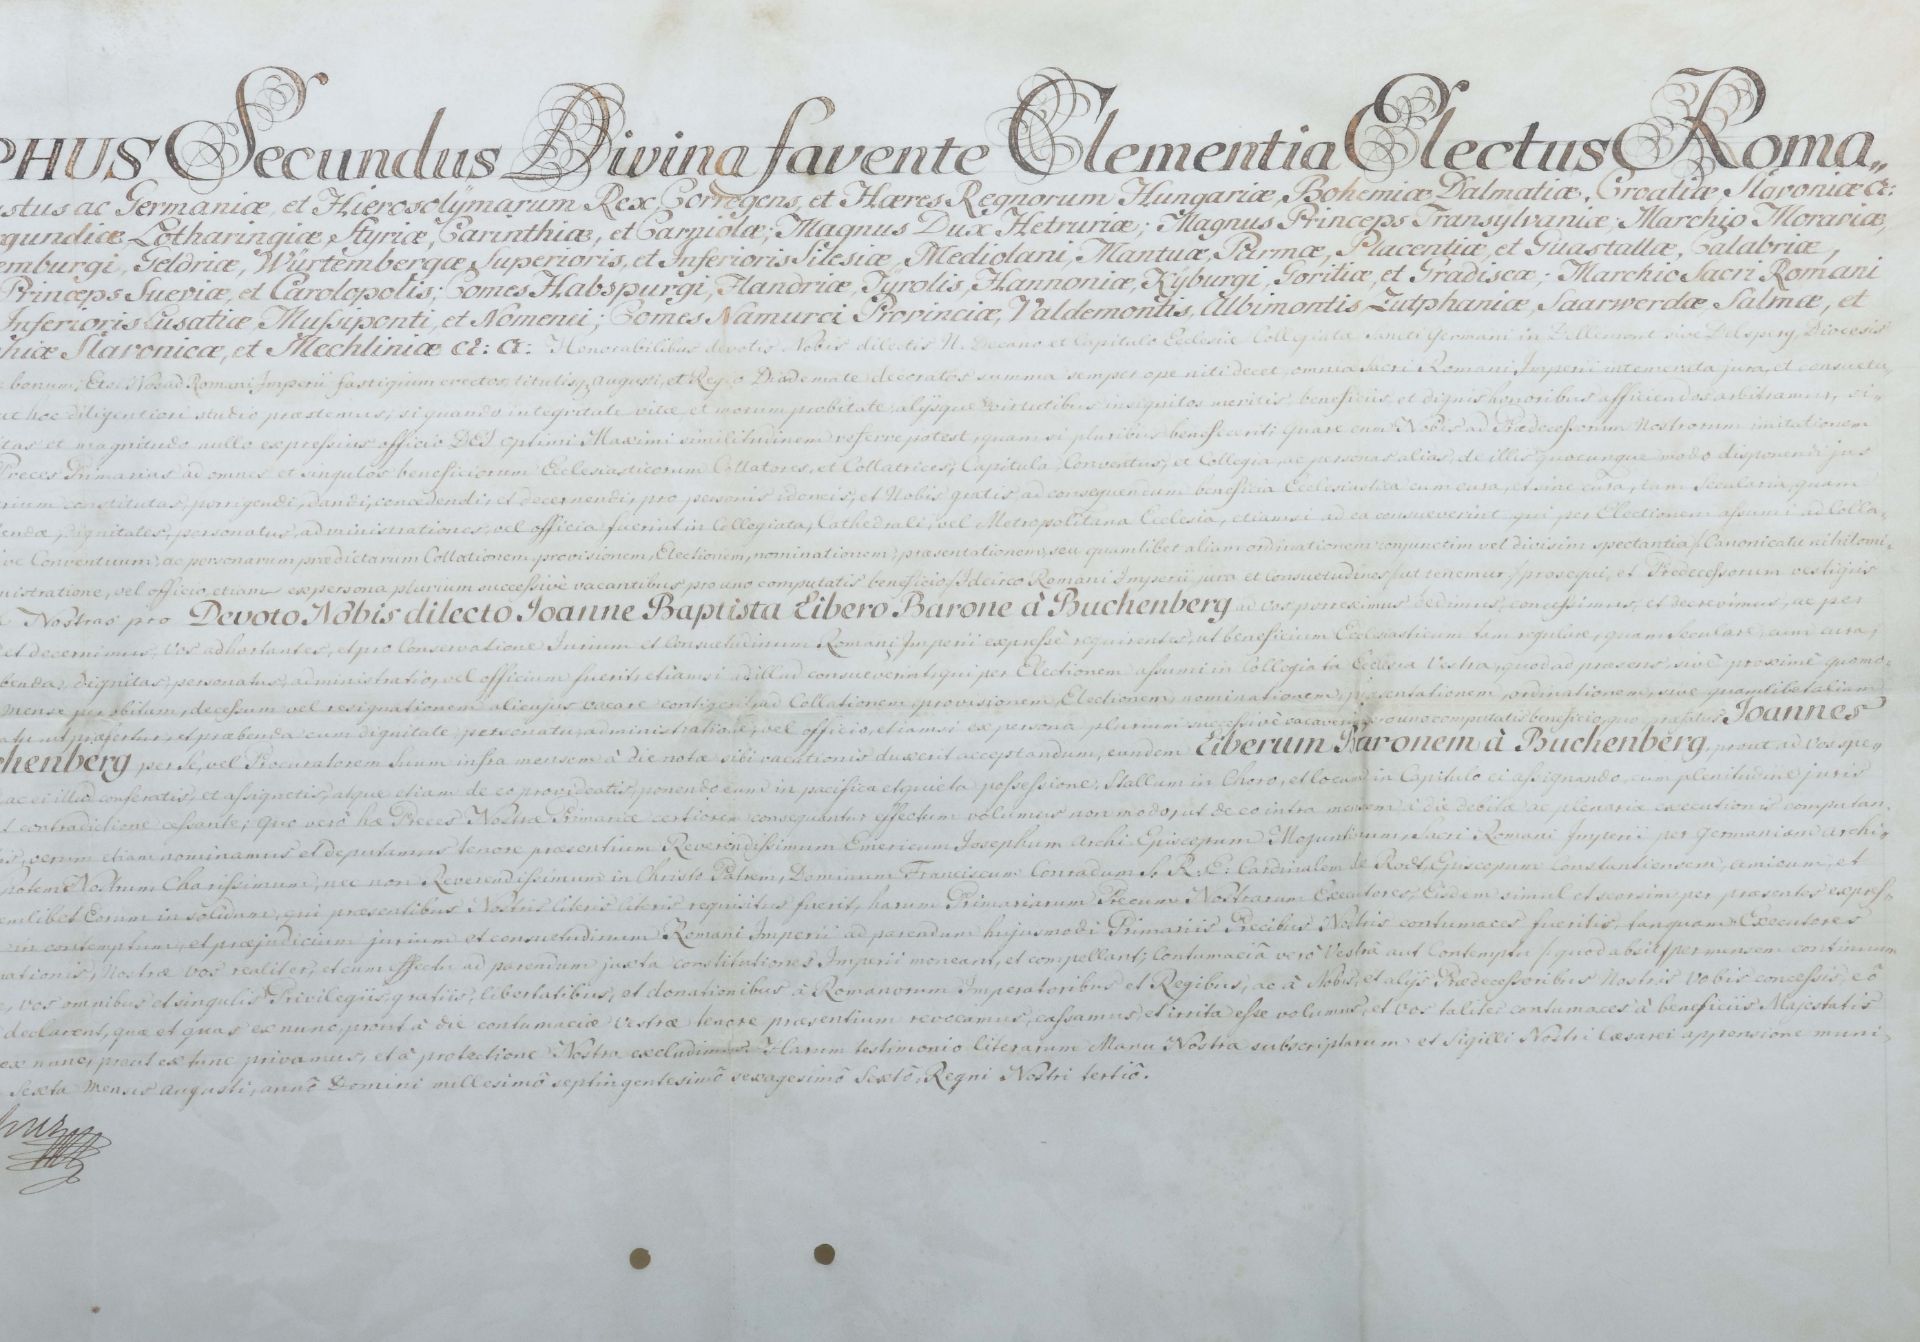 PHUS Secundus Divina favente Clementia Electus Roma„
ustus ac Germaniæ, et Hierosolÿmarum Rex, Corregens, et Hæres Regnorum Hungariæ, Bohemiæ Dalmatiæ, Croatiæ, Slavoniæ &:
rgundiæ, Lotharingiæ, Styriæ, Carinthiæ, et Carniolæ; Magnus Dux Hetruriæ; Magnus Princeps Transylvaniæ; Marchio Moraviæ,
emburgi, Geldriæ, Würtembergæ, Superioris, et Inferioris Silesiæ, Mediolani, Mantuæ, Parmæ, Placentiæ, et Guastallæ, Calabriæ,
Princeps Sueviæ, et Carolopolis; Comes Habspurgi, Flandriæ, Tÿrolis, Hannoniæ, Kÿburgi, Goritiæ, et Gradiscæ; Marchio Sacri Romani
Inferioris Lusatiæ, Mussiponti, et Nomenei; Comes Namurci Provinciæ, Valdemontis, Albimontis, Zutphaniæ, Saarwerdæ, Salmæ, et
hiæ Slavonicæ, et Mechliniæ &: &: Honorabilibus devotis Nobis dilectis N. Decano et Capitulo Ecclesiæ Collegiatæ Sancti Germani in Dellemont sive Delsperg, Diocesis
bonum; Etsi Nos ad Romani Imperii fastigium evectos, titulisq; augusti, et Regio Diademate decoratos summa semper ope niti decet, omnia Sacri Romani Imperii intemerata jura, et consuetu„
ut hoc diligentiori studio præstemus, si quando integritate vitæ et morum probitate, alÿsque virtutibus insignitos meritis beneficiis, et dignis honoribus afficiendos arbitramur, si„
itas et magnitudo nullo expressius officio DEI optimi Maximi similitudinem referre potest, quam si pluribus benefecerit; Quare cum Nobis ad Prædecessorum Nostrorum imitationem
Preces Primarias ad omnes et singulos beneficiorum Ecclesiasticorum Collatores, et Collatrices, Capitula, Conventus, et Collegia, ac personas alias, de illis quocunque modo disponendi jus
rium constitutas, porrigendi, dandi, concedendi, et decernendi, pro personis idoneis, et Nobis gratis ad consequendum beneficia Ecclesiastica cum cura, et sine cura, tam Secularia, quam
endæ, dignitates, personatus, administrationes, vel officia fuerint in Collegiata, Cathedrali, vel Metropolitana Ecclesia, etiamsi ad ea consueverint qui per Electionem assumi ad Colla„
ive Conventuum, ac personarum prædictarum Collationem, provisionem, Electionem, nominationem, præsentationem, seu quamlibet aliam ordinationem conjunctim vel divisim spectantia / Canonicatu nihilomi„
nistratione, vel officio, etiam ex persona plurium successivè vacantibus pro uno computatis beneficio / Idcirco Romani Imperii jura et Consuetudines / ut tenemur / prosequi, et Prædecessorum vestigiis
Nostras pro Devoto Nobis dilecto Ioanne Baptista Libero Barone à Buchenberg ad vos porreximus, dedimus, concessimus, et decrevimus, ac per
et decernimus, Vos adhortantes, et pro Conservatione Iurium et Consuetudinum Romani Imperii expressè requirentes, ut beneficium Ecclesiasticum tam regulare, quam Seculare, cum cura,
benda, dignitas, personatus, administratio, vel officium fuerit, etiamsi ad illud consueverint, qui per Electionem assumi in Collegiata Ecclesia Vestra, quod ad præsens, sivè proximè quomo„
mense per obitum, decessum vel resignationem alicujus vacare contigerit, ad Collationem, provisionem, Electionem, nominationem, præsentationem, ordinationem, sive quamlibet aliam
atu ut præfertur, et præbenda cum dignitate, personatu, administratione, vel officio, etiamsi ex persona plurium successivè vacaverint pro uno computatis beneficio, quo præfatus Ioannes
chenberg per se, vel Procuratorem suum infra mensem à die notæ sibi vacationis duxerit acceptandum, eundem Liberum Baronem à Buchenberg, prout ad vos spe„
ac ei illud conferatis, et assignetis, atque etiam de eo provideatis, ponendo eum in pacifica et quieta possessione, Stallum in Choro, et locum in Capitulo ei assignando, cum plenitudine juris
contradictione cessante; Quo verò hæ Preces Nostræ Primariæ certiorem consequantur effectum volumus non modo, ut de eo intra mensem à die debitæ ac plenariæ executionis computan„
is, verum etiam nominamus et deputamus tenore præsentium Reverendissimum Emericum Josephum Archi Episcopum Moguntinum, Sacri Romani Imperii per Germaniam Archi„
potem Nostrum Charissimum, nec non Reverendissimum in Christo Patrem, Dominum Franciscum Conradum S. R: E: Cardinalem de Rodt, Episcopum Constantiensem, amicum, et
emlibet Eorum in solidum, qui præsentibus Nostris literis literis requisitus fuerit, harum Primariarum Precum Nostrarum Executores, Eisdem simul et seorsim per præsentes expres„
in contemptum, et præjudicium jurium et consuetudinum Romani Imperii ad parendum hujusmodi Primariis Precibus Nostris contumaces fueritis, tanquam Executores
nationis, Nostræ vos realiter, et cum effectu ad parendum juxta constitutiones Imperii moneant, et compellant; Contumaciâ verò Vestrâ aut Contemptu / quod absit / per mensem continuum
vos omnibus et singulis Privilegiis, gratiis, libertatibus, et donationibus à Romanorum Imperatoribus et Regibus, ac à Nobis, et alijs Prædecessoribus Nostris Vobis concessis, eô
declarent, quæ et quas ex nunc, prout à die contumaciæ Vestræ tenore præsentium revocamus, cassamus, et irrita esse volumus, et vos taliter contumaces à beneficiis Majestatis
ex nunc, prout ex tunc privamus, et à protectione Nostra excludimus. Harum testimonio literarum Manu Nostra subscriptarum et Sigilli Nostri Cæsarei appensione muni„
Sexta Mensis Augusti, annô Domini millesimô septingentesimô sexagesimô Sextô, Regni Nostri tertiô.